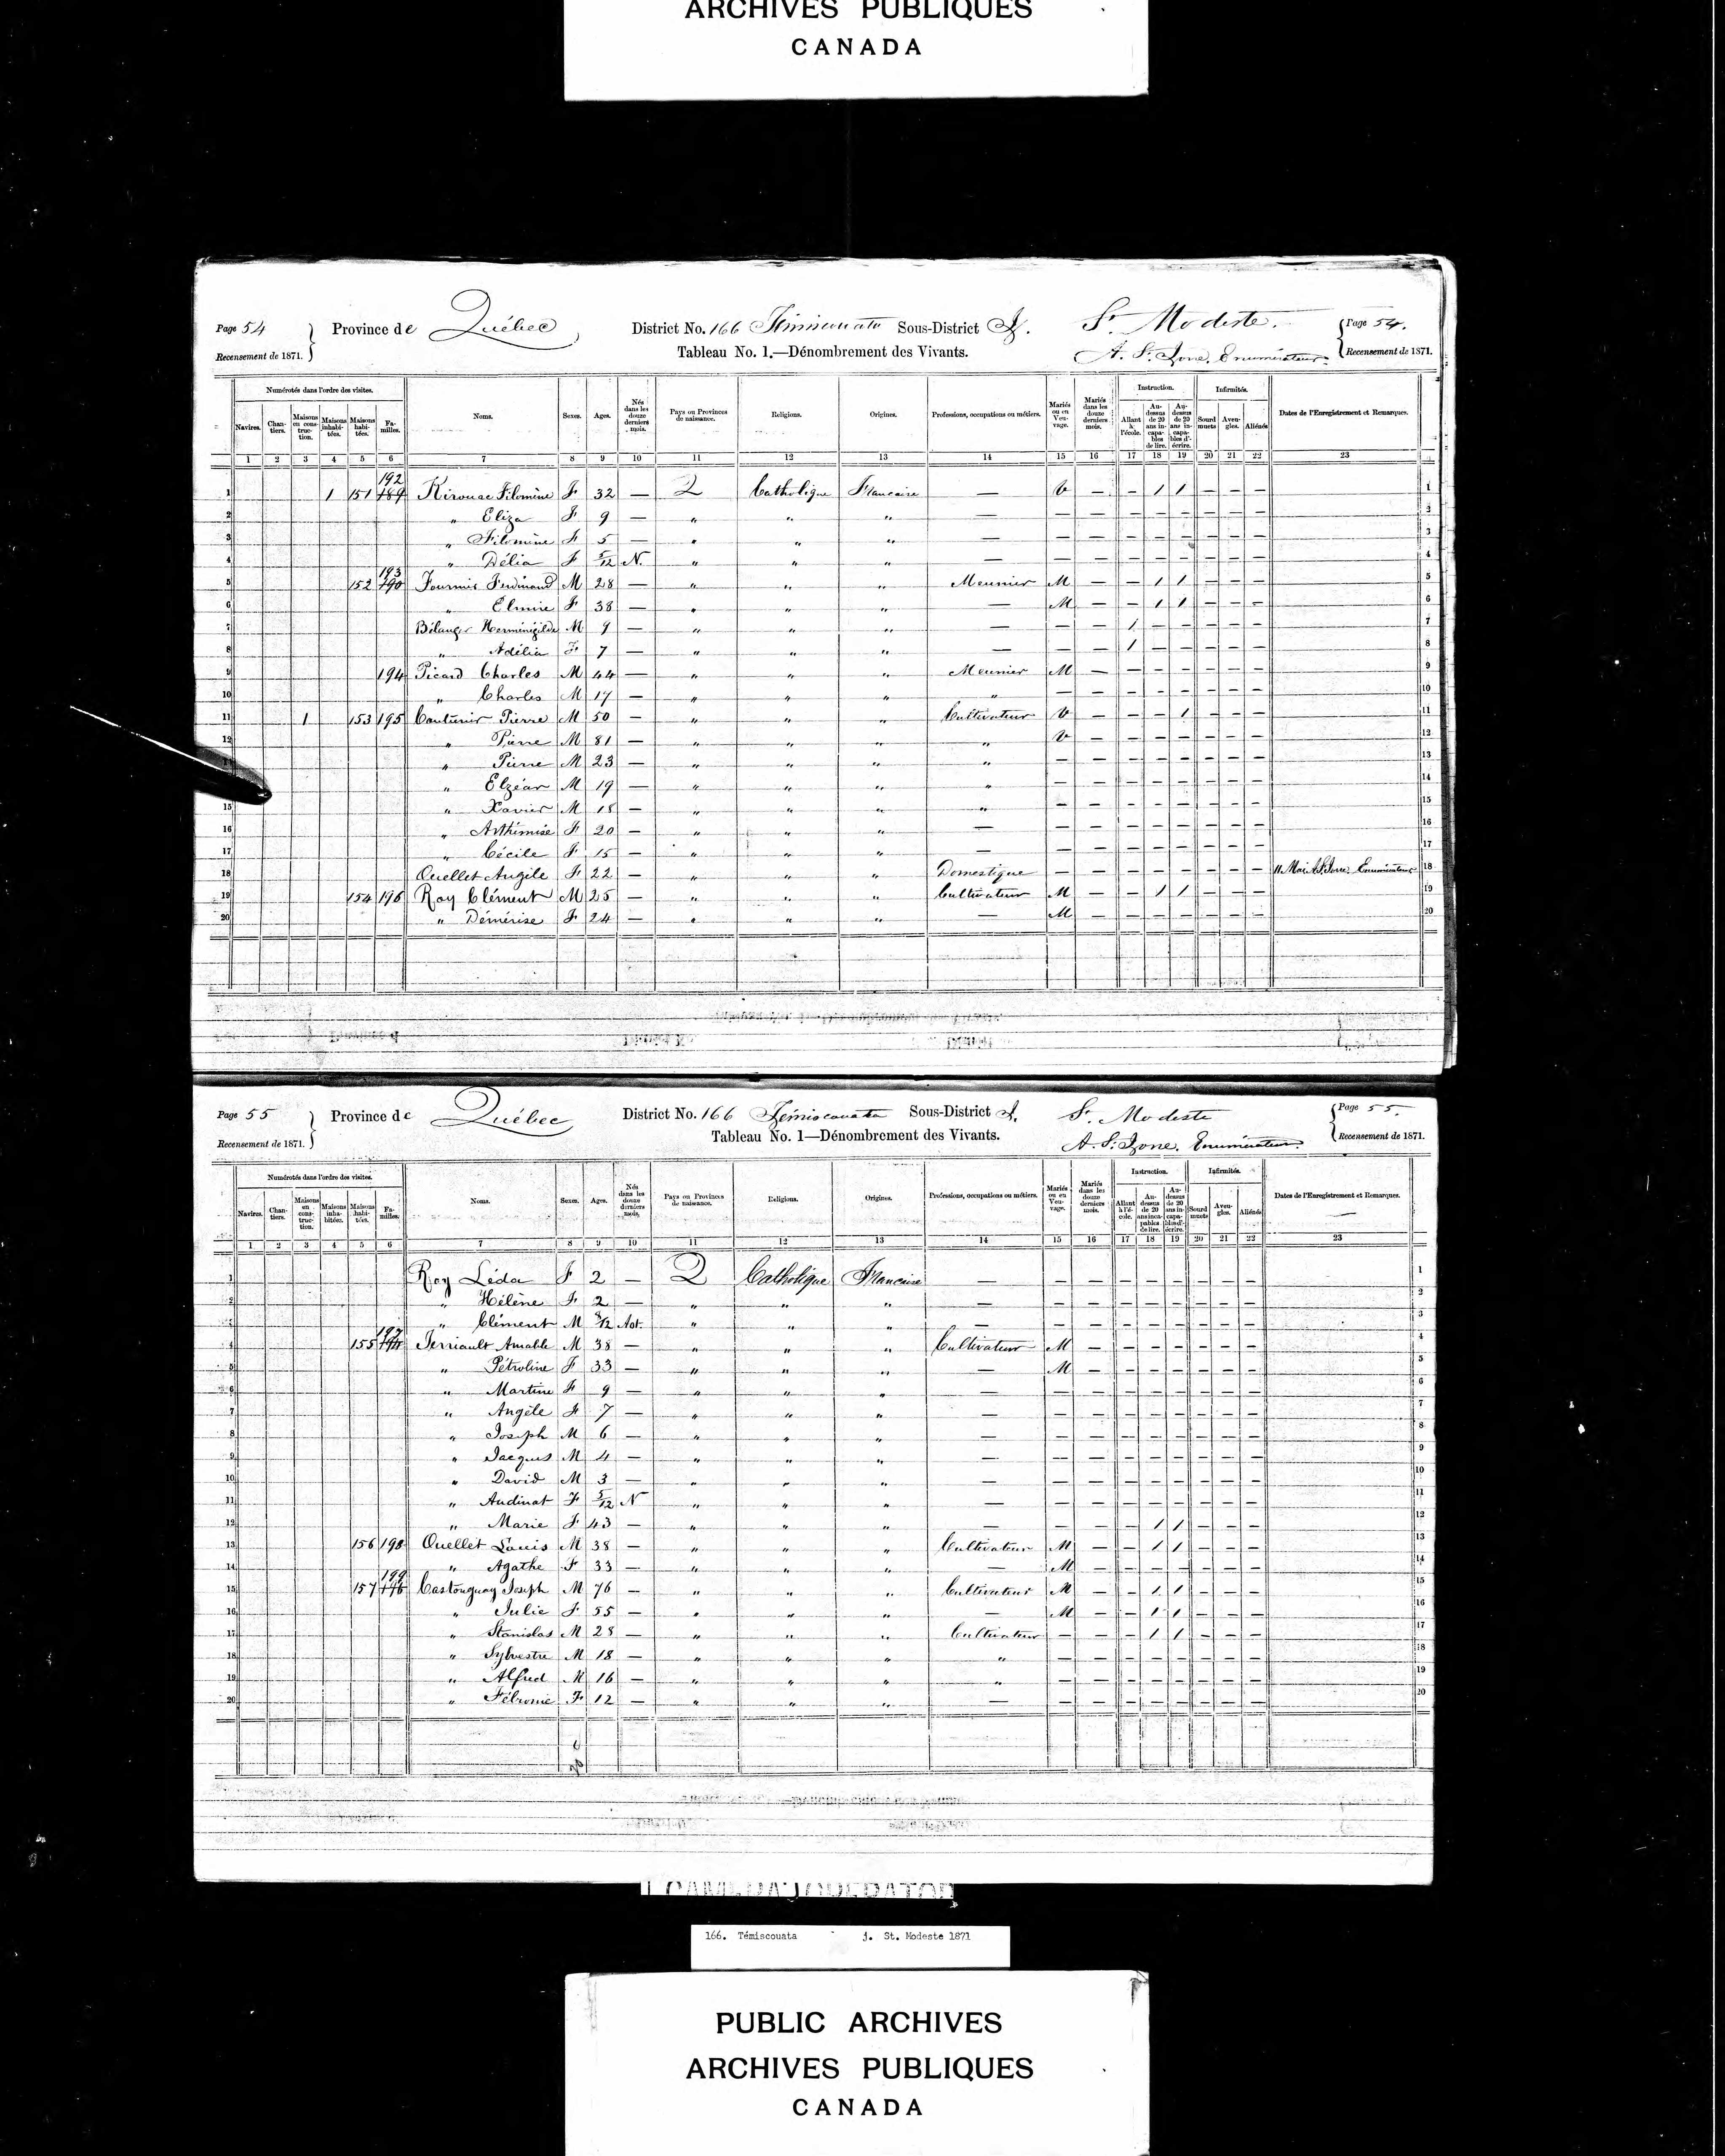 ARCHIVES PUBLIQUES
CANADA
Page 54 Province de Québec District No. 166 Témiscouata Sous-District J. St Modeste. Page 54.
Recensement de 1871. Tableau No. 1.—Dénombrement des Vivants. A. St. Enumérateur Recensement de 1871.
Numérotés dans l'ordre des visites. Instruction. Infirmités.
Navires. Chantiers. Maisons en construction. Maisons inhabitées. Maisons habitées. Familles. Noms. Sexes. Ages. Nés dans les douze derniers mois. Pays ou Provinces de naissance. Religions. Origines. Professions, occupations ou métiers. Mariés ou en Veuvage. Mariés dans les douze derniers mois. Allant à l'école. Au-dessus de 20 ans incapables de lire. Au-dessus de 20 ans incapables d'écrire. Sourd muets Aveugles. Aliénés Dates de l'Enregistrement et Remarques.
1 2 3 4 5 6 7 8 9 10 11 12 13 14 15 16 17 18 19 20 21 22 23
192
1 1 151 189 Kirouac Filomène F 32 — Q Catholique Francaise — V — — 1 1 — — — 1
2 " Eliza F 9 — " " " — — — — — — — — — 2
3 " Filomène F 5 — " " " — — — — — — — — — 3
4 " Délia F 5/12 N. " " " — — — — — — — — — 4
193
5 152 190 Fournier Ferdinand M 28 — " " " Meunier M — — 1 1 — — — 5
6 " Elmire F 38 — " " " — M — — 1 1 — — — 6
7 Bélanger Herménégilde M 9 — " " " — — — 1 — — — — — 7
8 " Adélia F 7 — " " " — — — 1 — — — — — 8
9 194 Picard Charles M 44 — " " " Meunier M — — — — — — — 9
10 " Charles M 17 — " " " " — — — — — — — — 10
11 1 153 195 Couturier Pierre M 50 — " " " Cultivateur V — — — 1 — — — 11
12 " Pierre M 81 — " " " " V — — — — — — — 12
" Pierre M 23 — " " " " — — — — — — — — 13
" Elzéar M 19 — " " " " — — — — — — — — 14
15 " Xavier M 18 — " " " " — — — — — — — — 15
16 " Arthémise F 20 — " " " — — — — — — — — — 16
17 " Cécile F 15 — " " " — — — — — — — — — 17
18 Ouellet Angèle F 22 — " " " Domestique — — — — — — — — 11 Mai A. St. Enumérateur 18
19 154 196 Roy Clément M 25 — " " " Cultivateur M — — 1 1 — — — 19
20 " Démérise F 24 — " " " — M — — — — — — — 20
Page 55 Province de Québec District No. 166 Témiscouata Sous-District J. St. Modeste Page 55.
Recensement de 1871. Tableau No. 1—Dénombrement des Vivants. A. St. Enumérateur Recensement de 1871.
Numérotés dans l'ordre des visites. Instruction. Infirmités.
Navires. Chantiers. Maisons en construction. Maisons inhabitées. Maisons habitées. Familles. Noms. Sexes. Ages. Nés dans les douze derniers mois. Pays ou Provinces de naissance. Religions. Origines. Professions, occupations ou métiers. Mariés ou en Veuvage. Mariés dans les douze derniers mois. Allant à l'école. Au-dessus de 20 ans incapables de lire. Au-dessus de 20 ans incapables d'écrire. Sourd muets Aveugles. Aliénés Dates de l'Enregistrement et Remarques.
1 2 3 4 5 6 7 8 9 10 11 12 13 14 15 16 17 18 19 20 21 22 23
1 Roy Léda F 2 — Q Catholique Francaise — — — — — — — — — 1
2 " Hélène F 2 — " " " — — — — — — — — — 2
" Clément M /12 " " " — — — — — — — — — 3
197
4 155 Terriault Amable M 38 — " " " Cultivateur M — — — — — — — 4
5 " Pétroline F 33 — " " " — M — — — — — — — 5
6 " Martine F 9 — " " " — — — — — — — — — 6
7 " Angèle F 7 — " " " — — — — — — — — — 7
8 " Joseph M 6 — " " " — — — — — — — — — 8
9 " Jacques M 4 — " " " — — — — — — — — — 9
10 " David M 3 — " " " — — — — — — — — — 10
11 " Audinat F 5/12 N " " " — — — — — — — — — 11
12 " Marie F 43 — " " " — — — — 1 1 — — — 12
13 156 198 Ouellet Louis M 38 — " " " Cultivateur M — — 1 1 — — — 13
14 " Agathe F 33 — " " " — M — — — — — — — 14
199
15 157 Castonguay Joseph M 76 — " " " Cultivateur M — — 1 1 — — — 15
16 " Julie F 55 — " " " — M — — 1 1 — — — 16
17 " Stanislas M 28 — " " " Cultivateur — — — 1 1 — — — 17
18 " Sylvestre M 18 — " " " " — — — — — — — — 18
19 " Alfred M 16 — " " " " — — — — — — — — 19
20 " Fébronie F 12 — " " " — — — — — — — — — 20
166. Témiscouata j. St. Modeste 1871
PUBLIC ARCHIVES
ARCHIVES PUBLIQUES
CANADA